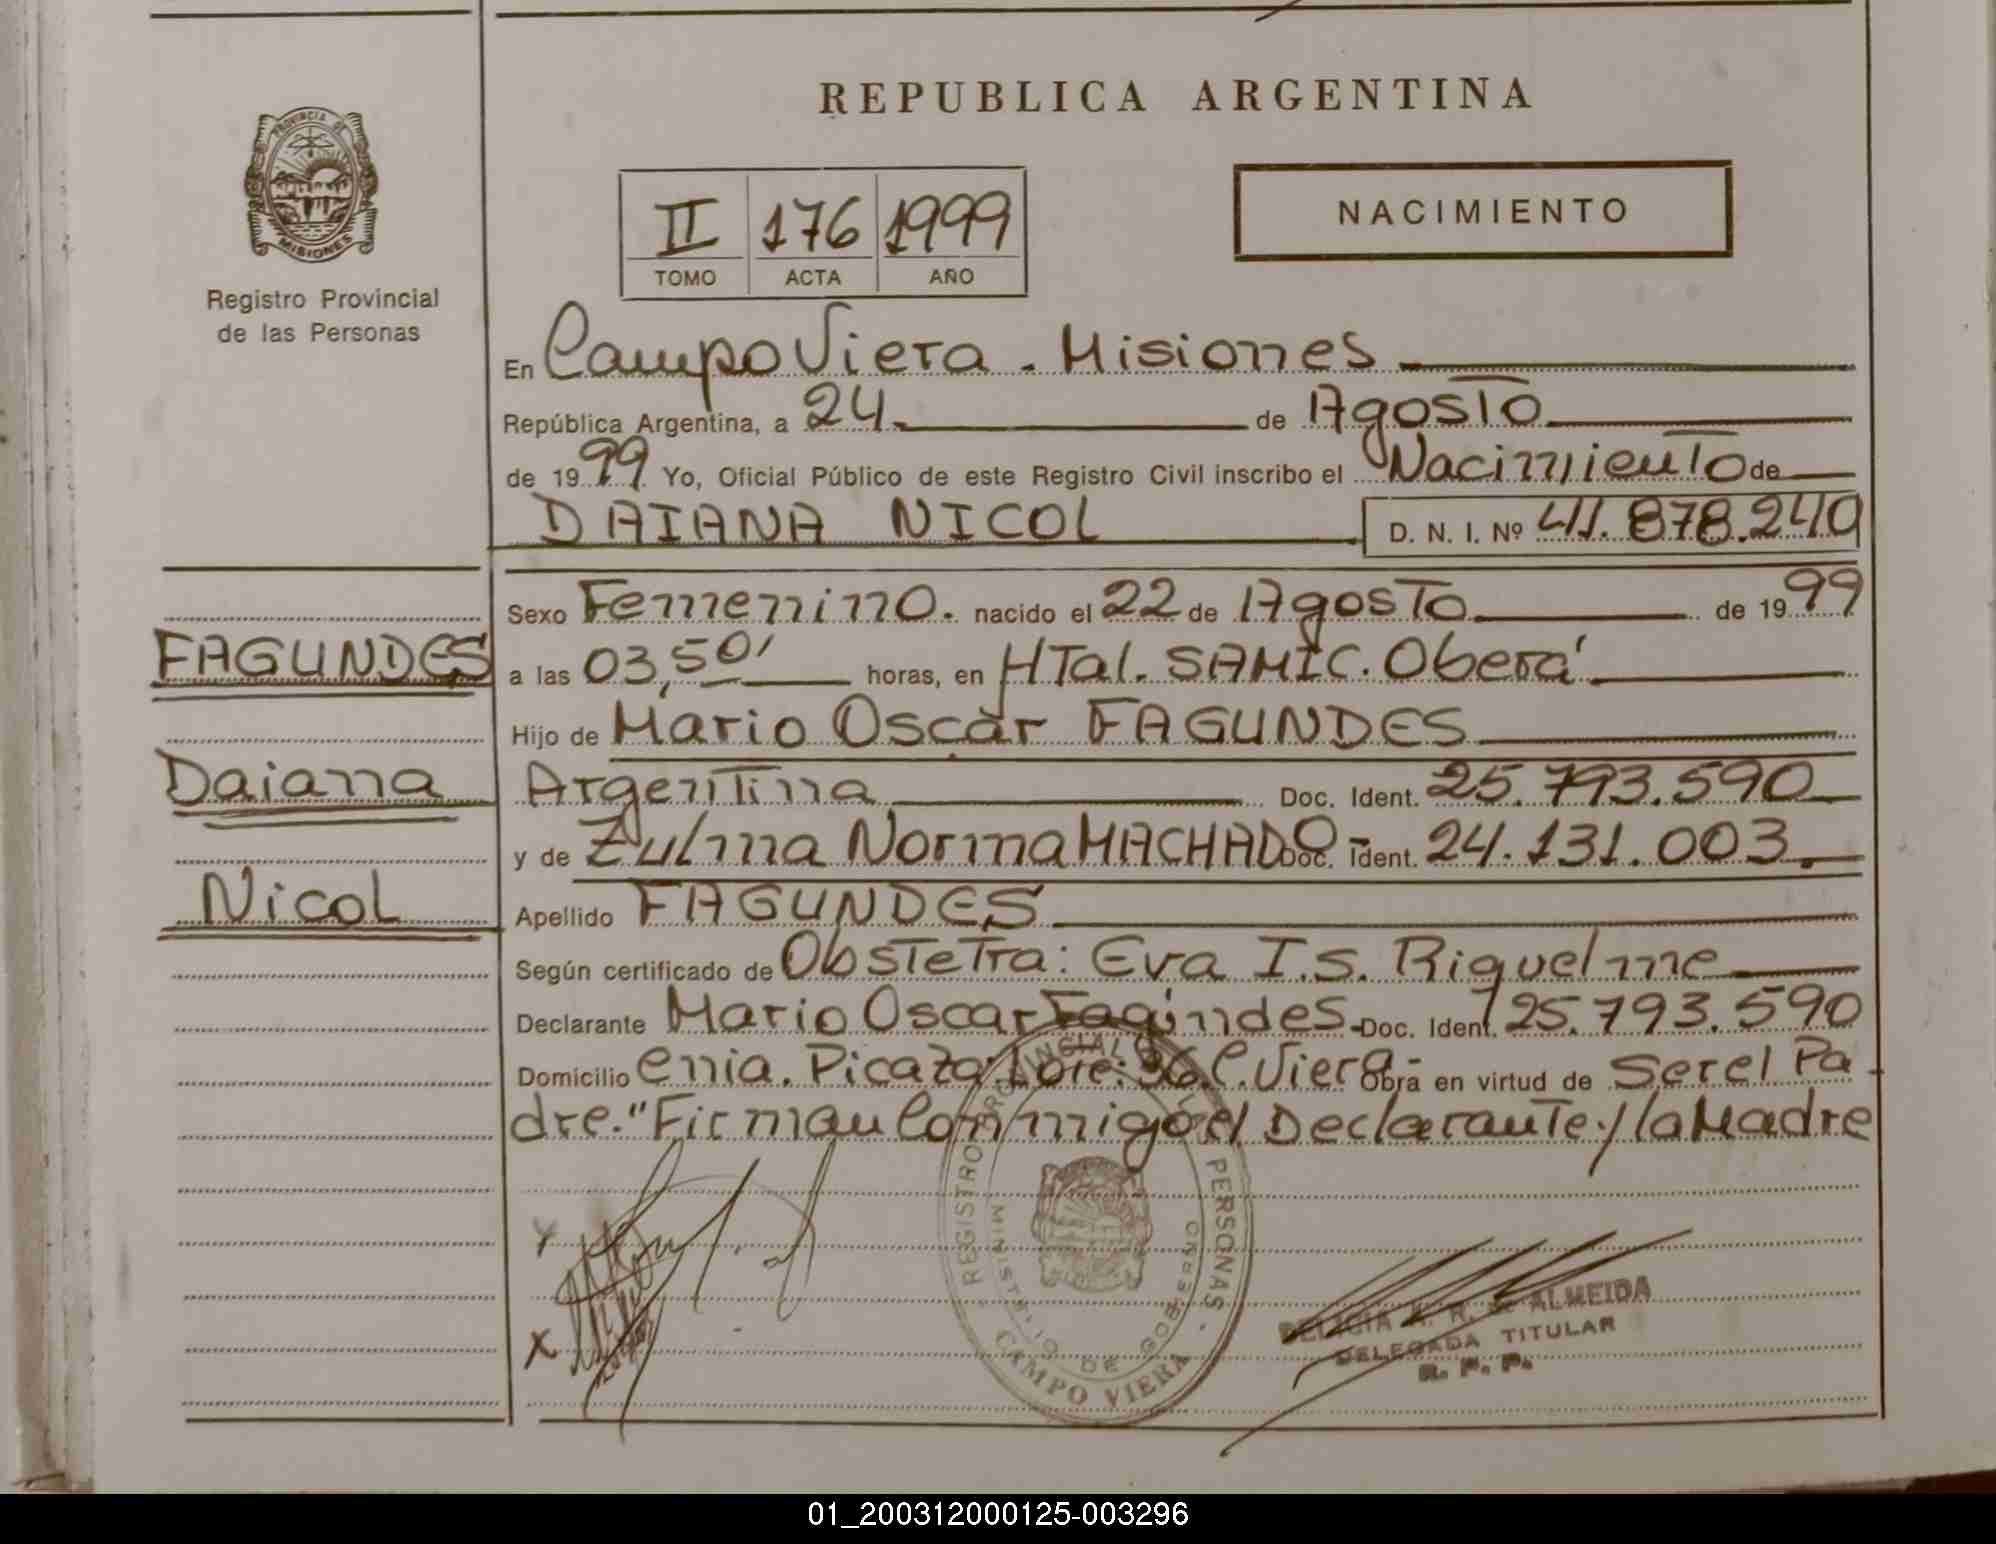 REPUBLICA ARGENTINA
PROVINCIA DE
MISIONES
Registro Provincial
de las Personas
II 176 1999
TOMO ACTA AÑO
NACIMIENTO
En Campo Viera - Misiones
República Argentina, a 24 de Agosto
de 1999 Yo, Oficial Público de este Registro Civil inscribo el Nacimiento de
DAIANA NICOL D. N. I. Nº 41.878.240
FAGUNDES
Daiana
Nicol
Sexo Femenino. nacido el 22 de Agosto de 1999
a las 03,50' horas, en HTal. SAMIC. Oberá
Hijo de Mario Oscar FAGUNDES
Argentina Doc. Ident. 25.793.590
y de Zulma Norma MACHADO - Doc. Ident. 24.131.003.
Apellido FAGUNDES
Según certificado de Obstetra: Eva I.S. Riquelme
Declarante Mario Oscar Fagundes - Doc. Ident. 25.793.590
Domicilio Cnia. Picaza Lote: 36 C. Viera - Obra en virtud de Ser el Pa
dre. "Firman Conmigo el Declarante y la Madre
REGISTRO PROVINCIAL DE LAS PERSONAS
MINISTERIO DE GOBIERNO
CAMPO VIERA
X
DELICIA A. R. de ALMEIDA
DELEGADA TITULAR
R. P. P.
01_200312000125-003296